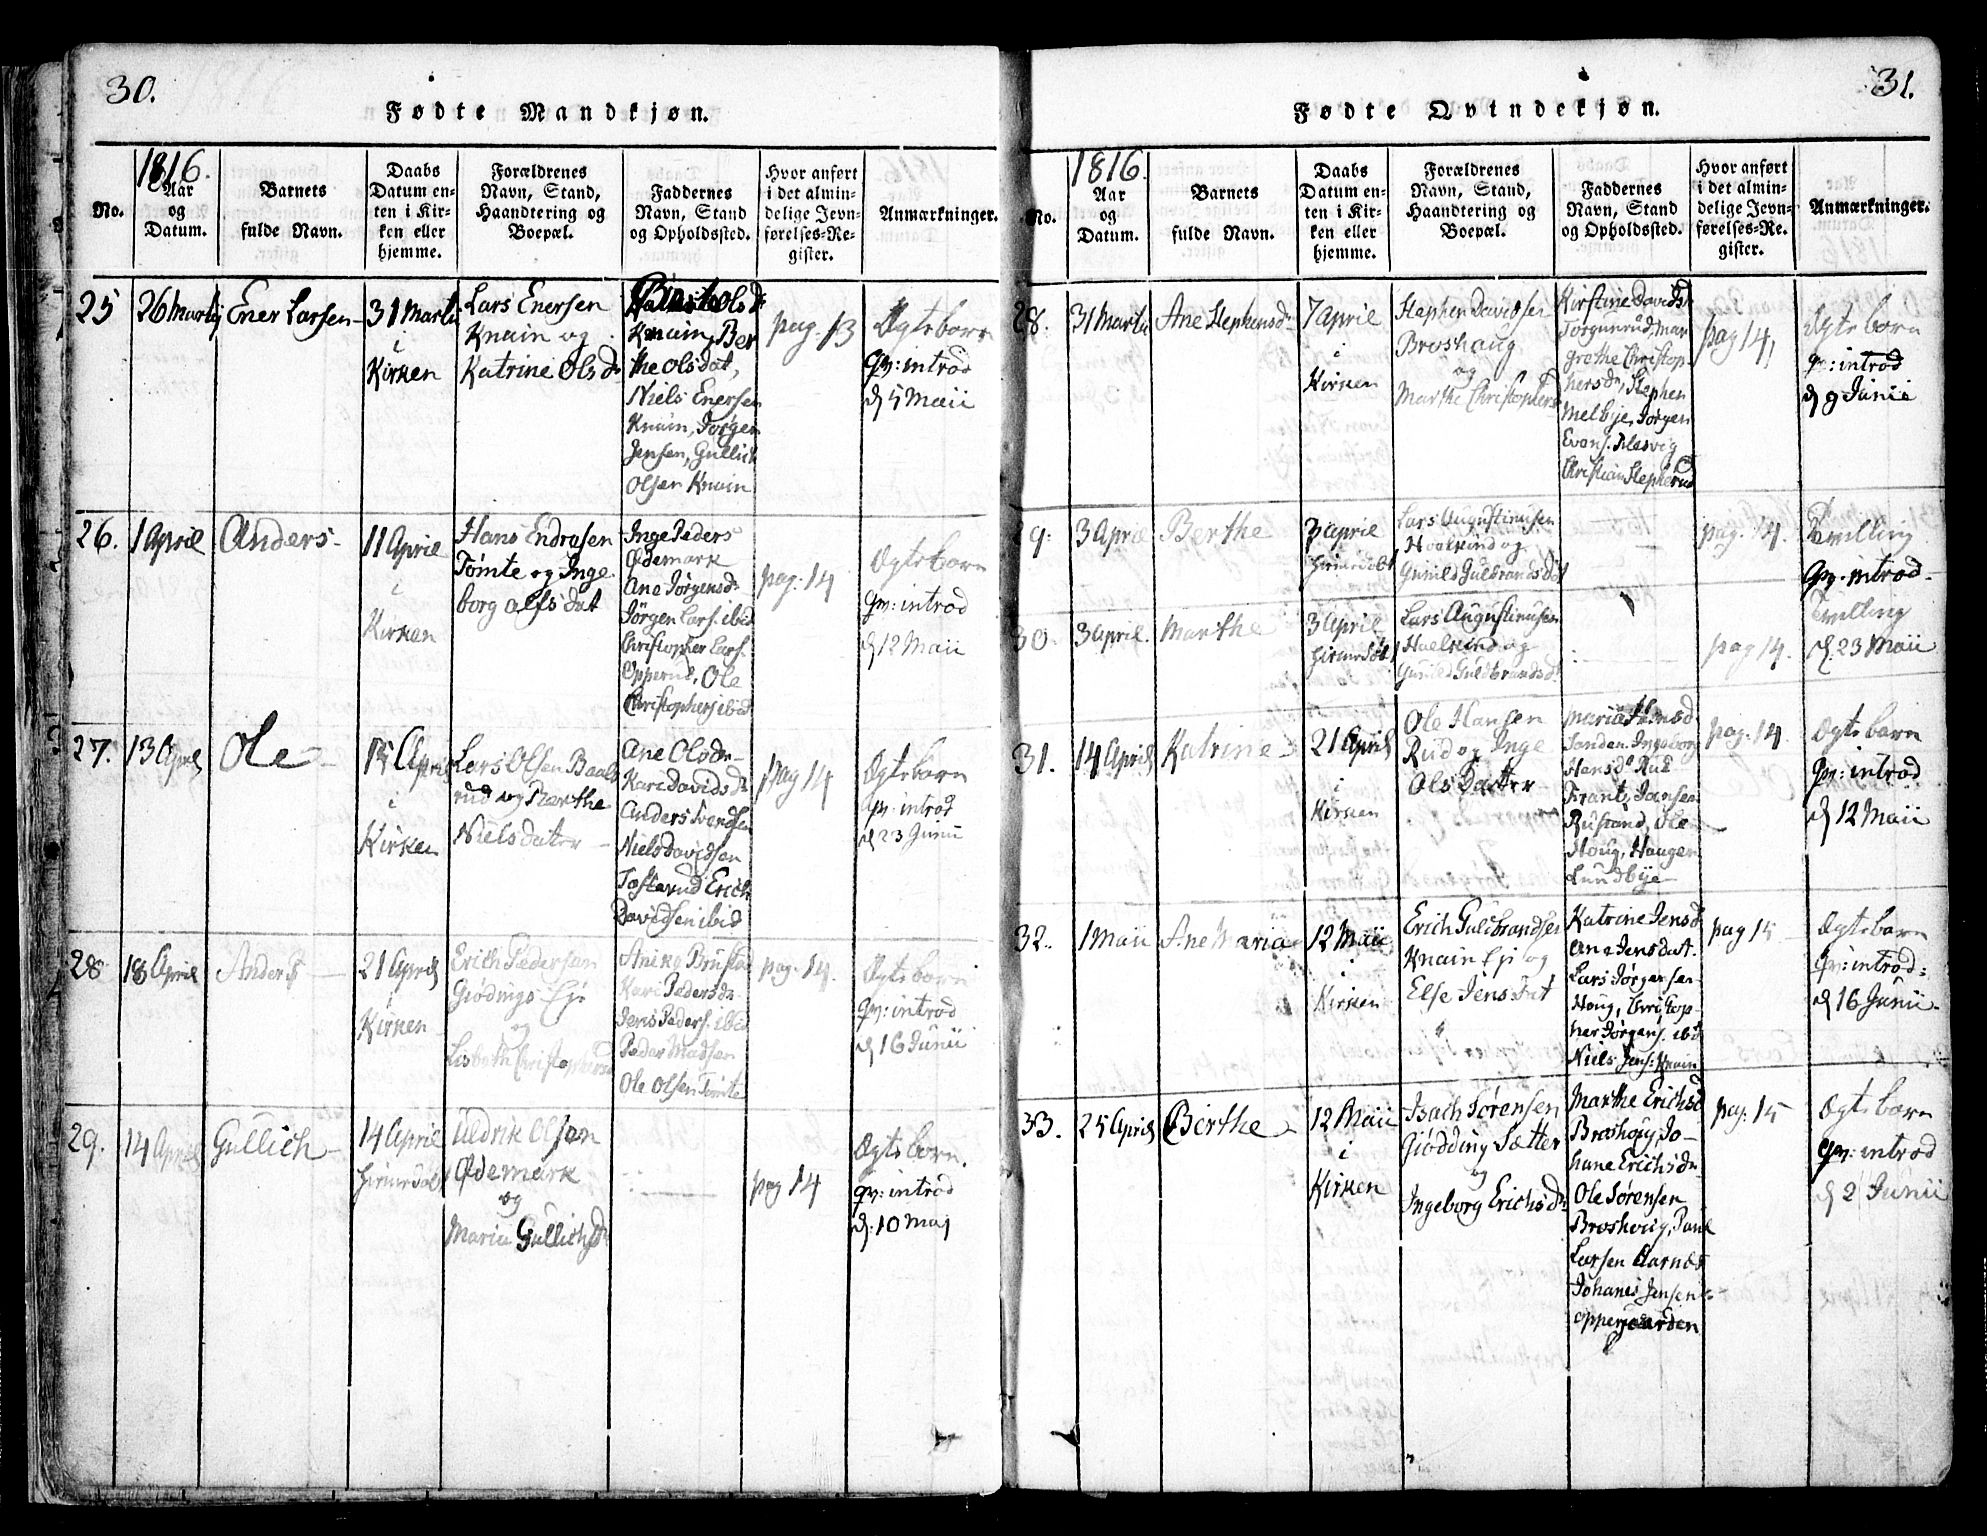 30.
Fødte Mandkjøn.
No.
1816.
Aar
og
Datum.
Barnets
fulde Navn.
Daabs
Datum en-
ten i Kir-
ken eller
hjemme.
Forældrenes
Navn, Stand,
Haandtering og
Boepæl.
Faddernes
Navn, Stand
og Opholdssted.
Hvor anført
i det almin-
delige Jevn-
førelses-Re-
gister.
Anmærkninger.
25
26 Martij
Ener Larsen
31 Martij
i
Kirken
Lars Enersen
Knain og
Katrine Olsdr
Olsdr
Knain, Ber
the Olsdat,
Niels Enersen
Knain, Jørgen
Jensen, Gullich
Olsen Knain
pag. 13
Ægte barn
Qv: introd
d 5 Maii
26.
1 April
Anders
11 April
i
Kirken
Hans Endresen
Tømte og Inge
borg Alfsdat
Inge Peders
Ødemark
Ane Jørgensdr
Jörgen Lars. ibid
Christopher Lars.
Opperud, Ole
Christophers ibid
pag. 14
Ægte barn
Qv: introd
d 12 Maii
27.
13 April
Ole
15 April
i
Kirken
Lars Olsen Baals
rud og Marthe
Nielsdater
Ane Olsdr
Kari Davidsdr
Anders Svendsen
Niels Davidsen
Tosterud Erich
Davidsen ibid
pag 14
Ægte barn
Qv: introd
d 23 Junii
28
18 April
Anders
21 April
i
Kirken
Erich Pedersen
Giødings Eje
og
Lisbeth Christophersd
Anike Brustad
Kari Pedersdr
Jens Peders. ibid
Peder Madsen
Ole Olsen Tømte
pag. 14.
Ægte barn
Qv: introd
d 16 Junii
29.
14 April
Gullich
14 April
hiemedøbt
Uldrik Olsen
Ødemark
og
Maria Gullichsdr
pag 14
Ægte barn.
Qv: introd
d. 10 Maj
31.
Fødte Qvindekjøn.
No.
1816.
Aar
og
Datum.
Barnets
fulde Navn.
Daabs
Datum en-
ten i Kir-
ken eller
hjemme.
Forældrenes
Navn, Stand,
Haandtering og
Boepæl.
Faddernes
Navn, Stand
og Opholdssted.
Hvor anført
i det almin-
delige Jevn-
førelses-Re-
gister.
Anmærkninger.
28.
31 Martii
Ane Stephensdr
7 April
i
Kirken
Stephen Davidsen
Broshaug
og
Marthe Christophersd
Kirstine Davidsd
Torgunrud, Mar
grethe Christop-
hersdr, Stephen
Melbye, Jörgen
Evens.
Christian Stephensd
pag 14,
Ægte born
Qv: introd
d 9 Junii
29.
3 April
Berthe
3 april
hiemedøbt
Lars Augustinusen
og
Gunild Gulbrandsdat
pag. 14.
Tvilling
Qv. introd.
30.
3 April.
Marthe
3 April
hiemedøbt
Lars Augustinusen
og
Gunild Guldbrandsd
pag 14.
Tvilling
d. 23 Maii
31.
14 April
Katrine
21 April
i
Kirken
Ole Hansen
Rud og Inge
Ols Datter
Maria Hansd
Sanden, Ingeborg
Hansdr Rud
Frant, Jansen
Rustand, Ole
Houg, Haagen
Lundbye
pag. 14
Ægte barn
Qv: introd
d 12 Maii
32.
1 Maii
Ane Maria
12 Maii
i
Kirken
Erich Gulbrandsen
Knain Eje og
Else Jensdat
Katrine Jensdr
Ane Jensdat.
Lars Jørgensen
Houg, Christop-
her Jörgens. ibid
Niels Jens: Knain
pag 15
Ægte barn
Qv: introd:
d 16 Junii
33.
25 April
Berthe
12 Maii
i
Kirken
Isach Sørensen
Giødding Sætter
og
Ingeborg Erichsdr
Marthe Erichsd
Broshoug, Jo-
hane Erichsdr
Ole Sørensen
Broshoug, Paul
Larsen Aarnæs
Johanes Jensen
oppergaarden
pag. 15
Ægte barn
Qv: introd
d 2 Junii